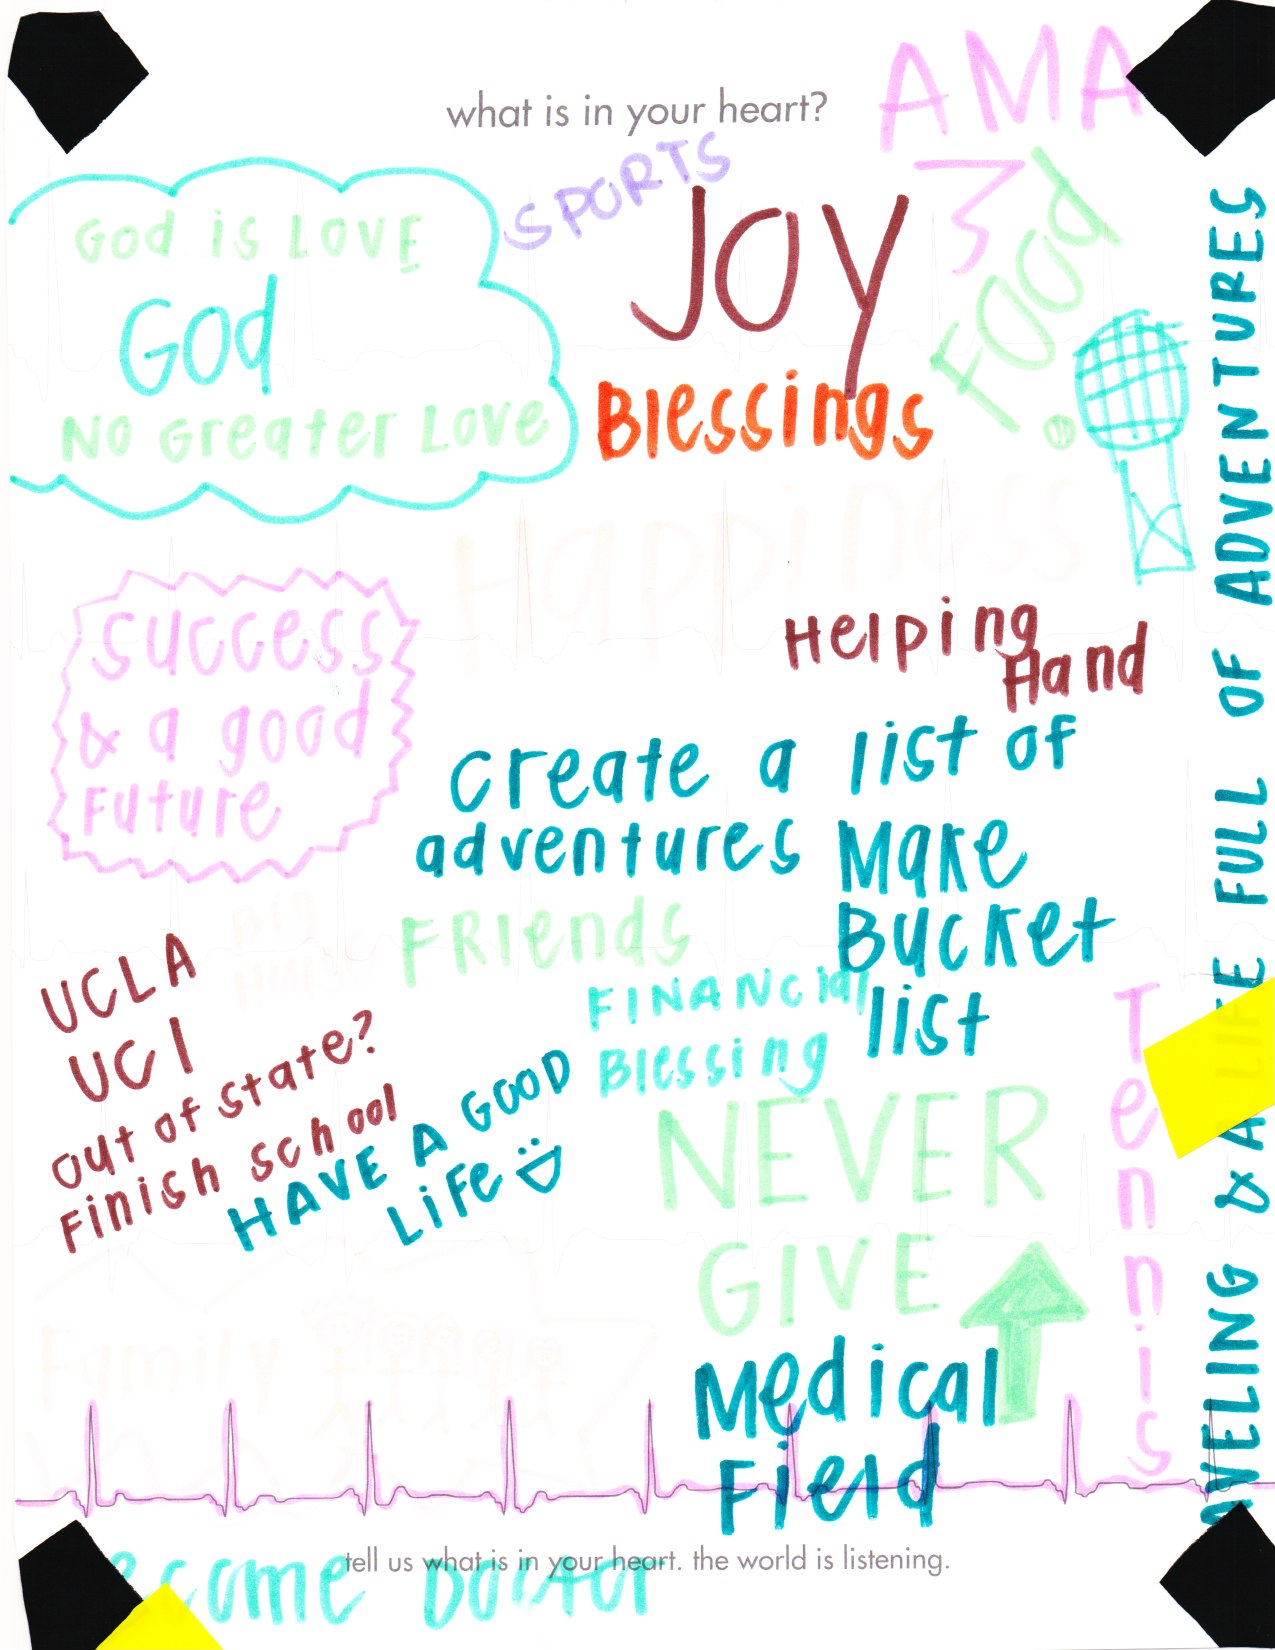 what is in your heart?
AMA
SPORTS
JOY
FOOD
God is LOVE
God
No Greater Love
Blessings
Happiness
success
& a good
Future
Helping
Hand
create a list of
adventures
Make
Bucket
list
FRIends
FINANCial
Blessing
UCLA
UCI
out of state?
Finish school
HAVE A GOOD
LiFe
NEVER
GIVE
Medical
Field
Tennis
& A LIFE FULL OF ADVENTURES
Family
tell us what is in your heart. the world is listening.
Doctor